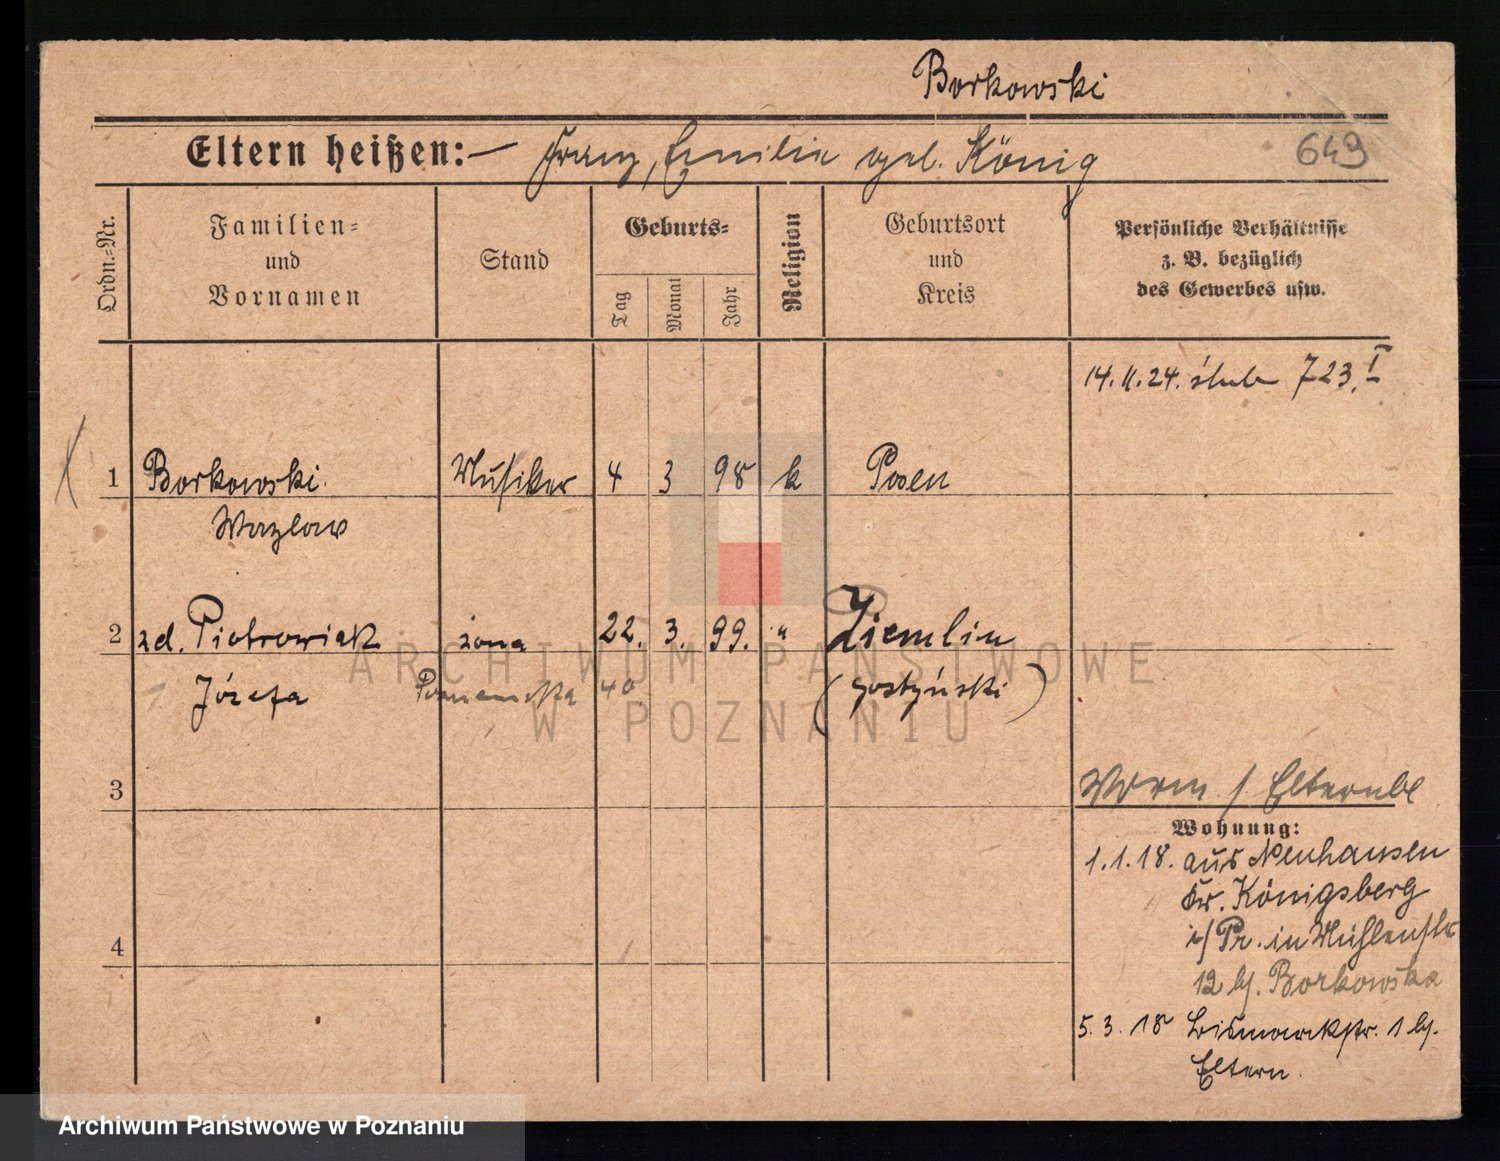 Borkowski
Eltern heißen: — Franz, Emilie geb. König
649
Ordn.-Nr.
Familien-
und
Vornamen
Stand
Geburts-
Tag
Monat
Jahr
Religion
Geburtsort
und
Kreis
Persönliche Verhältnisse
z. B. bezüglich
des Gewerbes usw.
14.II.24. ślub 723.I
1 Borkowski Musiker 4 3 98 k Posen
Wazlaw
2 zd. Piotrowiak żona 22. 3. 99. " Ziemlin
Józefa 40 (gostyński)
ARCHIWUM PAŃSTWOWE
W POZNANIU
3
Elternbl
Wohnung:
1.1.18. aus Neuhausen
Kr. Königsberg
i/Pr. in Mühlenstr
12 b/. Borkowska
4
5.3.18 Bismarckstr. 1 b/.
Eltern.
Archiwum Państwowe w Poznaniu